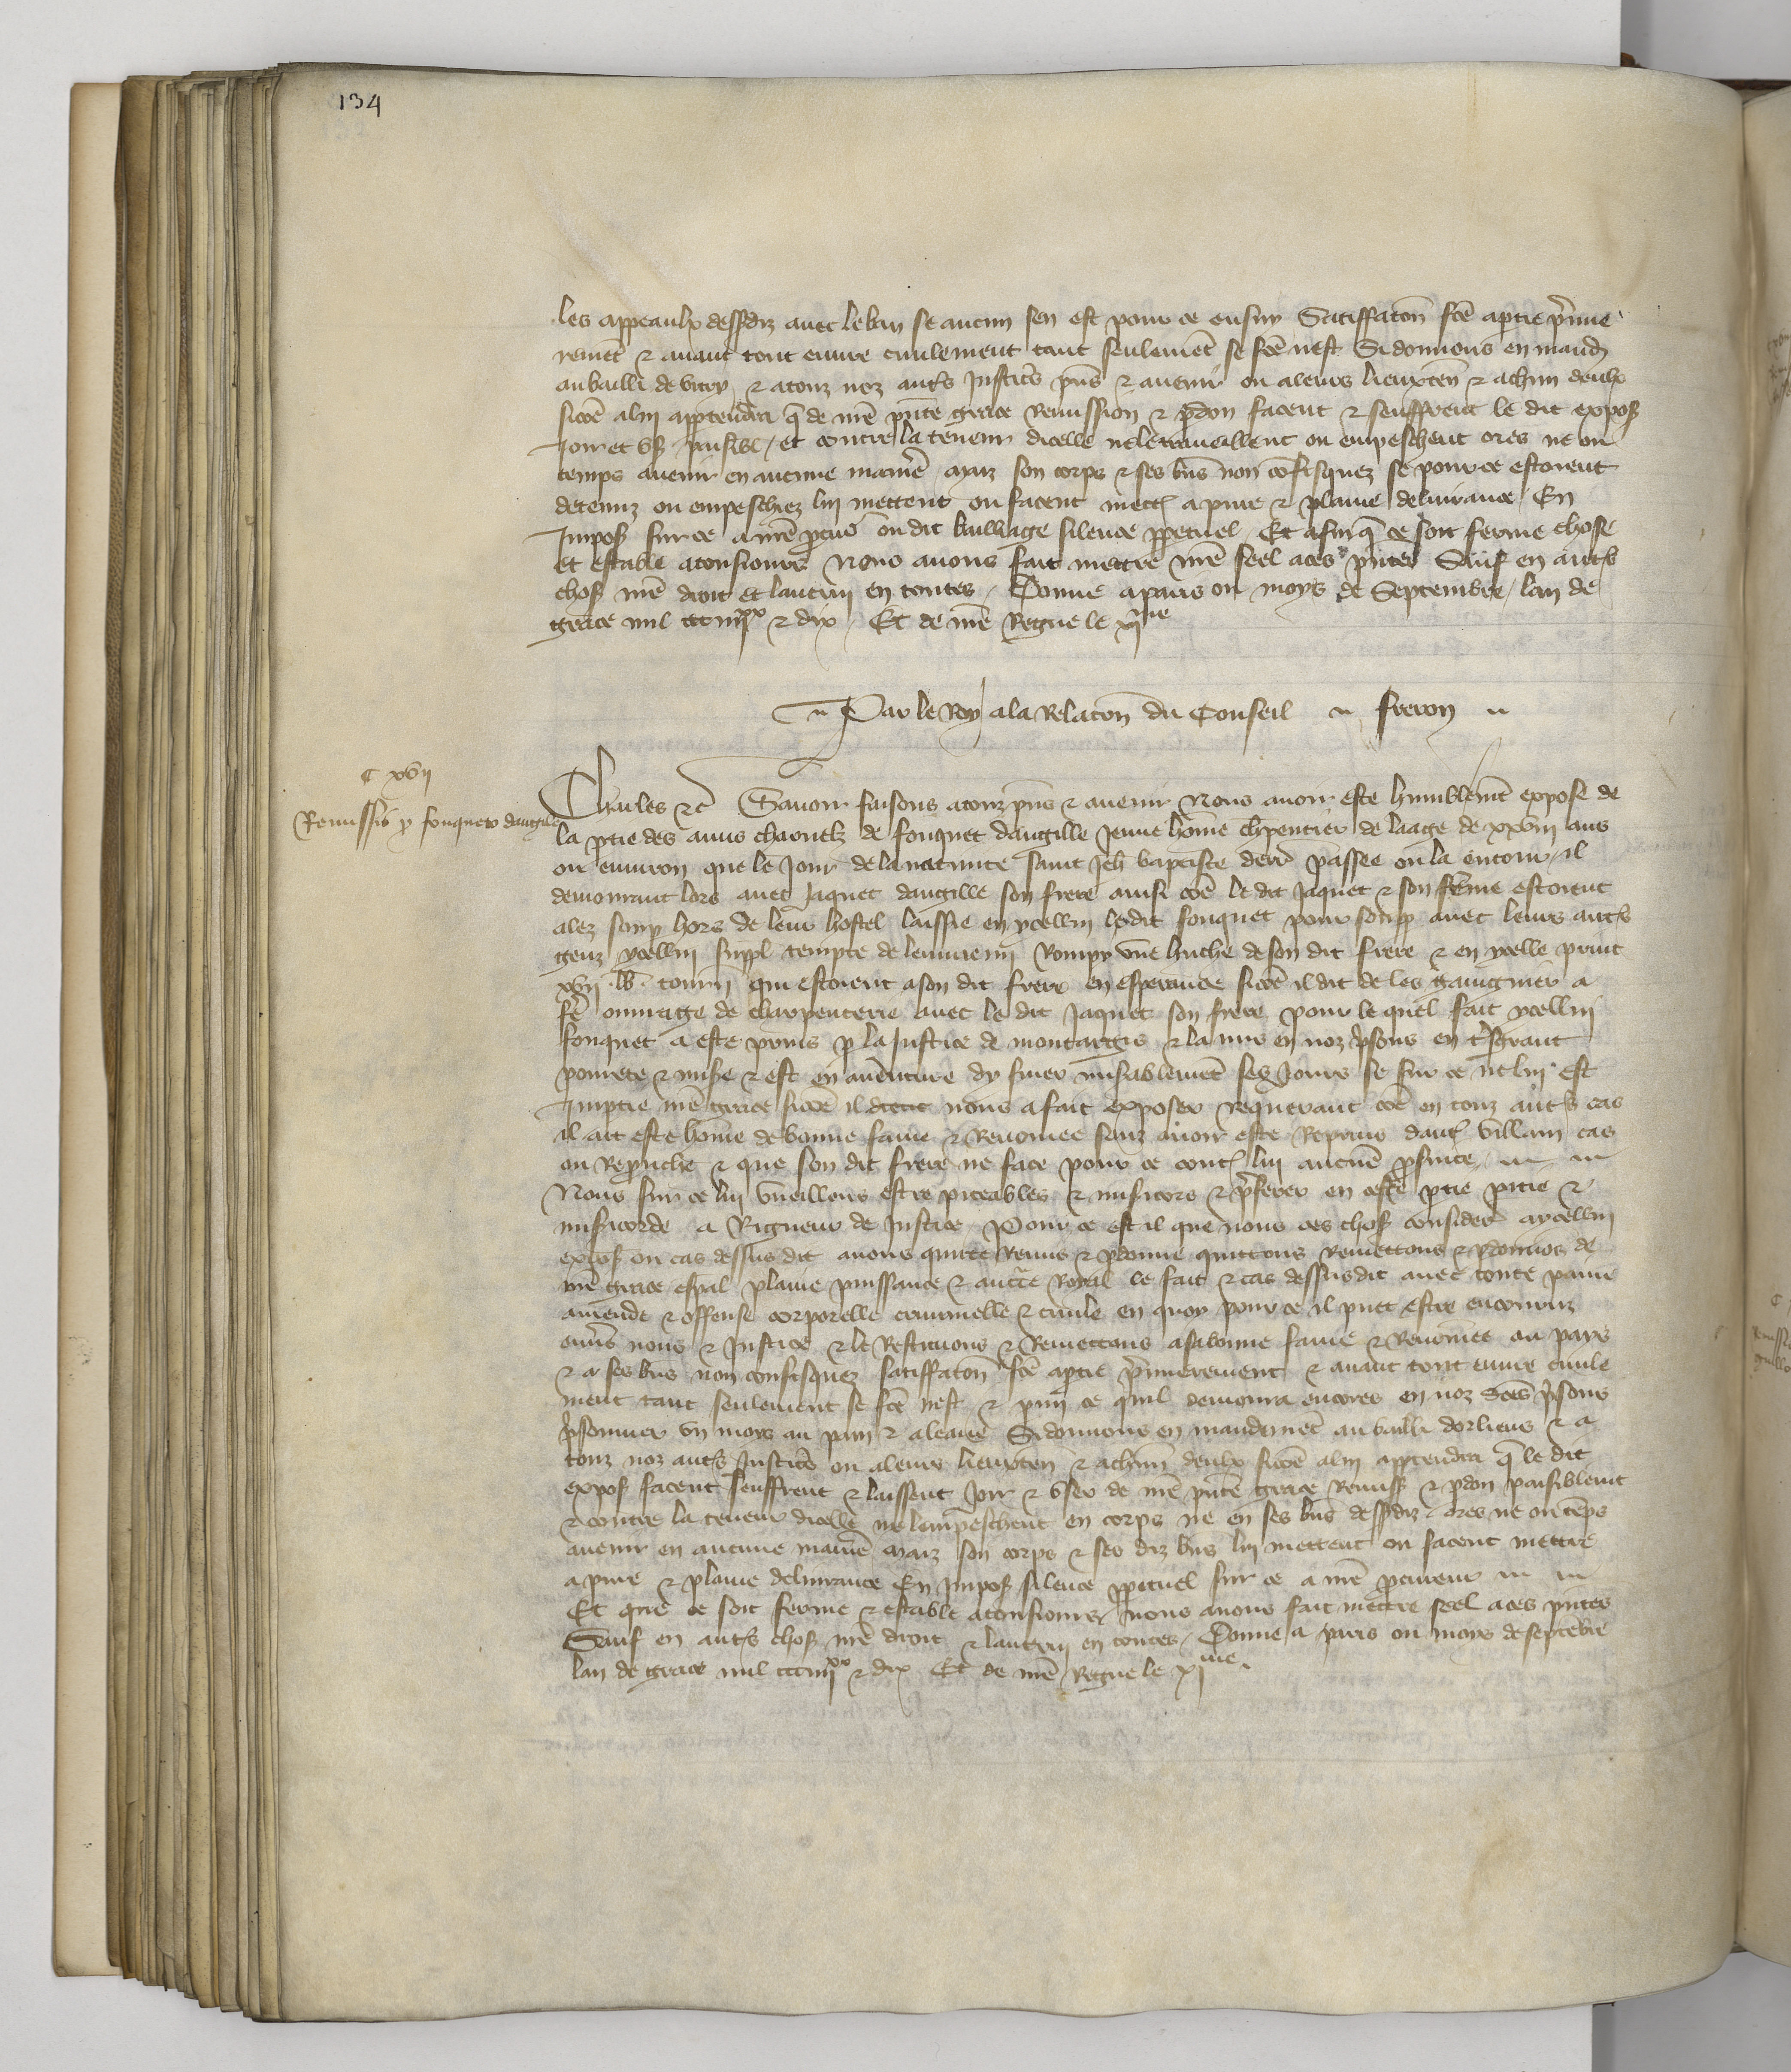 134
les appeaulx dessdiz avec le ban se aucun sen est pour ce ensuy Satiffaton fce a ptie prime
remet & avant tout euvre civilement tant seulemet se fce nest Si donnons en mand
au bailli de vitry & a touz noz auts Justices pns & avenir ou a leurs lieuxten & a chun deulx
sicoe a lui appartendra q de nre pnte grace Remission & pdon facent & seuffrent le dit expos
Joir et us paisibl / et contre la teneur dicelle ne le traveillent ou empeschent ores ne ou
temps avenir en aucune maniere ayns son corps & ses bns non confisquez se pour ce estoient
detenuz ou empeschiez lui mettent ou facent mett a pleine & plaine delivrance / En
Impos sur ce a nre pcur ou dit bailliage silence ppetuel Et afin q ce soit ferme chose
et estable a tousiours Nous avons fait mettre nre seel a ces pntes Sauf en auts
chos nre droit et lautrui en toutes / Donne a paris ou moys de Septembre / lan de
grace mil ccc iiiixx & dix / Et de nre Regne le xime
Par le Roy a la Relaton du Conseil Freron
C xvii
Remissio p fouqueto dangile
Charles &c Savoir faisons a touz pns & avenir Nous avoir este humblemet expose de
la ptie des amis charnelz de fouquet dangille Jeune home chpentier de laage de xxviii ans
ou environ que le Jour de la nativite saint Jeh baptiste derr passee ou la entour / il
demourant lors avec Jaquet dangille son frere ainsi coe le dit Jaquet & son feme estoient
alez soup hors de leur hostel laissie en ycellui ledit fouquet pour soup avec leurs auts
genz ycellui suppl tempte de lennemi Rompy une huche de son dit frere & en ycelle print
xvii lb tourn qui estoient a son dit frere en esperance sicoe il dit de les gaingnier a
fe ouvrage de charpenterie avec le dit Jaquet son frere pour le quel fait ycellui
fouquet a este prins p la Justice de montargis & la mis en noz psons en tsgrant
povrete & mise & est en aventure dy finer misablemet ses Jours se sur ce ne lui est
Imptie nre grace sicoe il dient nous a fait exposer requerant coe en touz auts cas
il ait este home de bonne fame & Renomee sanz avoir este Reprins daut villain cas
ou Reprouche & que son dit frere ne face pour ce cont lui aucune psuite
Nous sur ce lui vueillons estre piteables & misicors & pferer en ceste ptie pitie &
misicorde a Rigueur de Justice Pour ce est il que nous ces chos considere a ycellui
expos ou cas dessus dit avons quitte Remis & pdonne quittons Remettons & pdonnos de
nre grace espal plaine puissance & aucte Royal le fait & cas dessusdit avec toute paine
amende & offense corporelle criminelle & civile en quoy pour ce il puet estre encouruz
envs nous & Justice & le Restituons & Remettons a sa bonne fame & Renomee au pays
& a ses bns non confisquez satiffaton fce a ptie primierement & avant tout euvre civile
ment tant seulement se fce nest & pmi ce quil demourra encores en noz dces psons
psonnier un moys au pain & a leaue Si donnons en mandemet au bailli dorliens & a
touz noz auts Justices ou a leurs lieuxten & a chun deulx sicoe a lui apptendra q le dit
expos facent seuffrent & laissent Joir & user de nre pnte grace Remiss & pdon paisiblemt
& contre la teneur dicelle ne lempeschent en corps ne en ses bns dessdiz / ores ne ou teps
avenir en aucune maniere mais son corps & ses diz bns lui mettent ou facent mettre
a pleine & plaine delivrance En Impos silence ppetuel sur ce a nre pcureur
Et que ce soit ferme & estable a tousiours / nous avons fait mettre seel a ces pntes
Sauf en auts chos nre droit & lautrui en toutes / Donne a paris ou moys de septebre
lan de grace mil ccc iiiixx & dix Et de nre Regne le xime